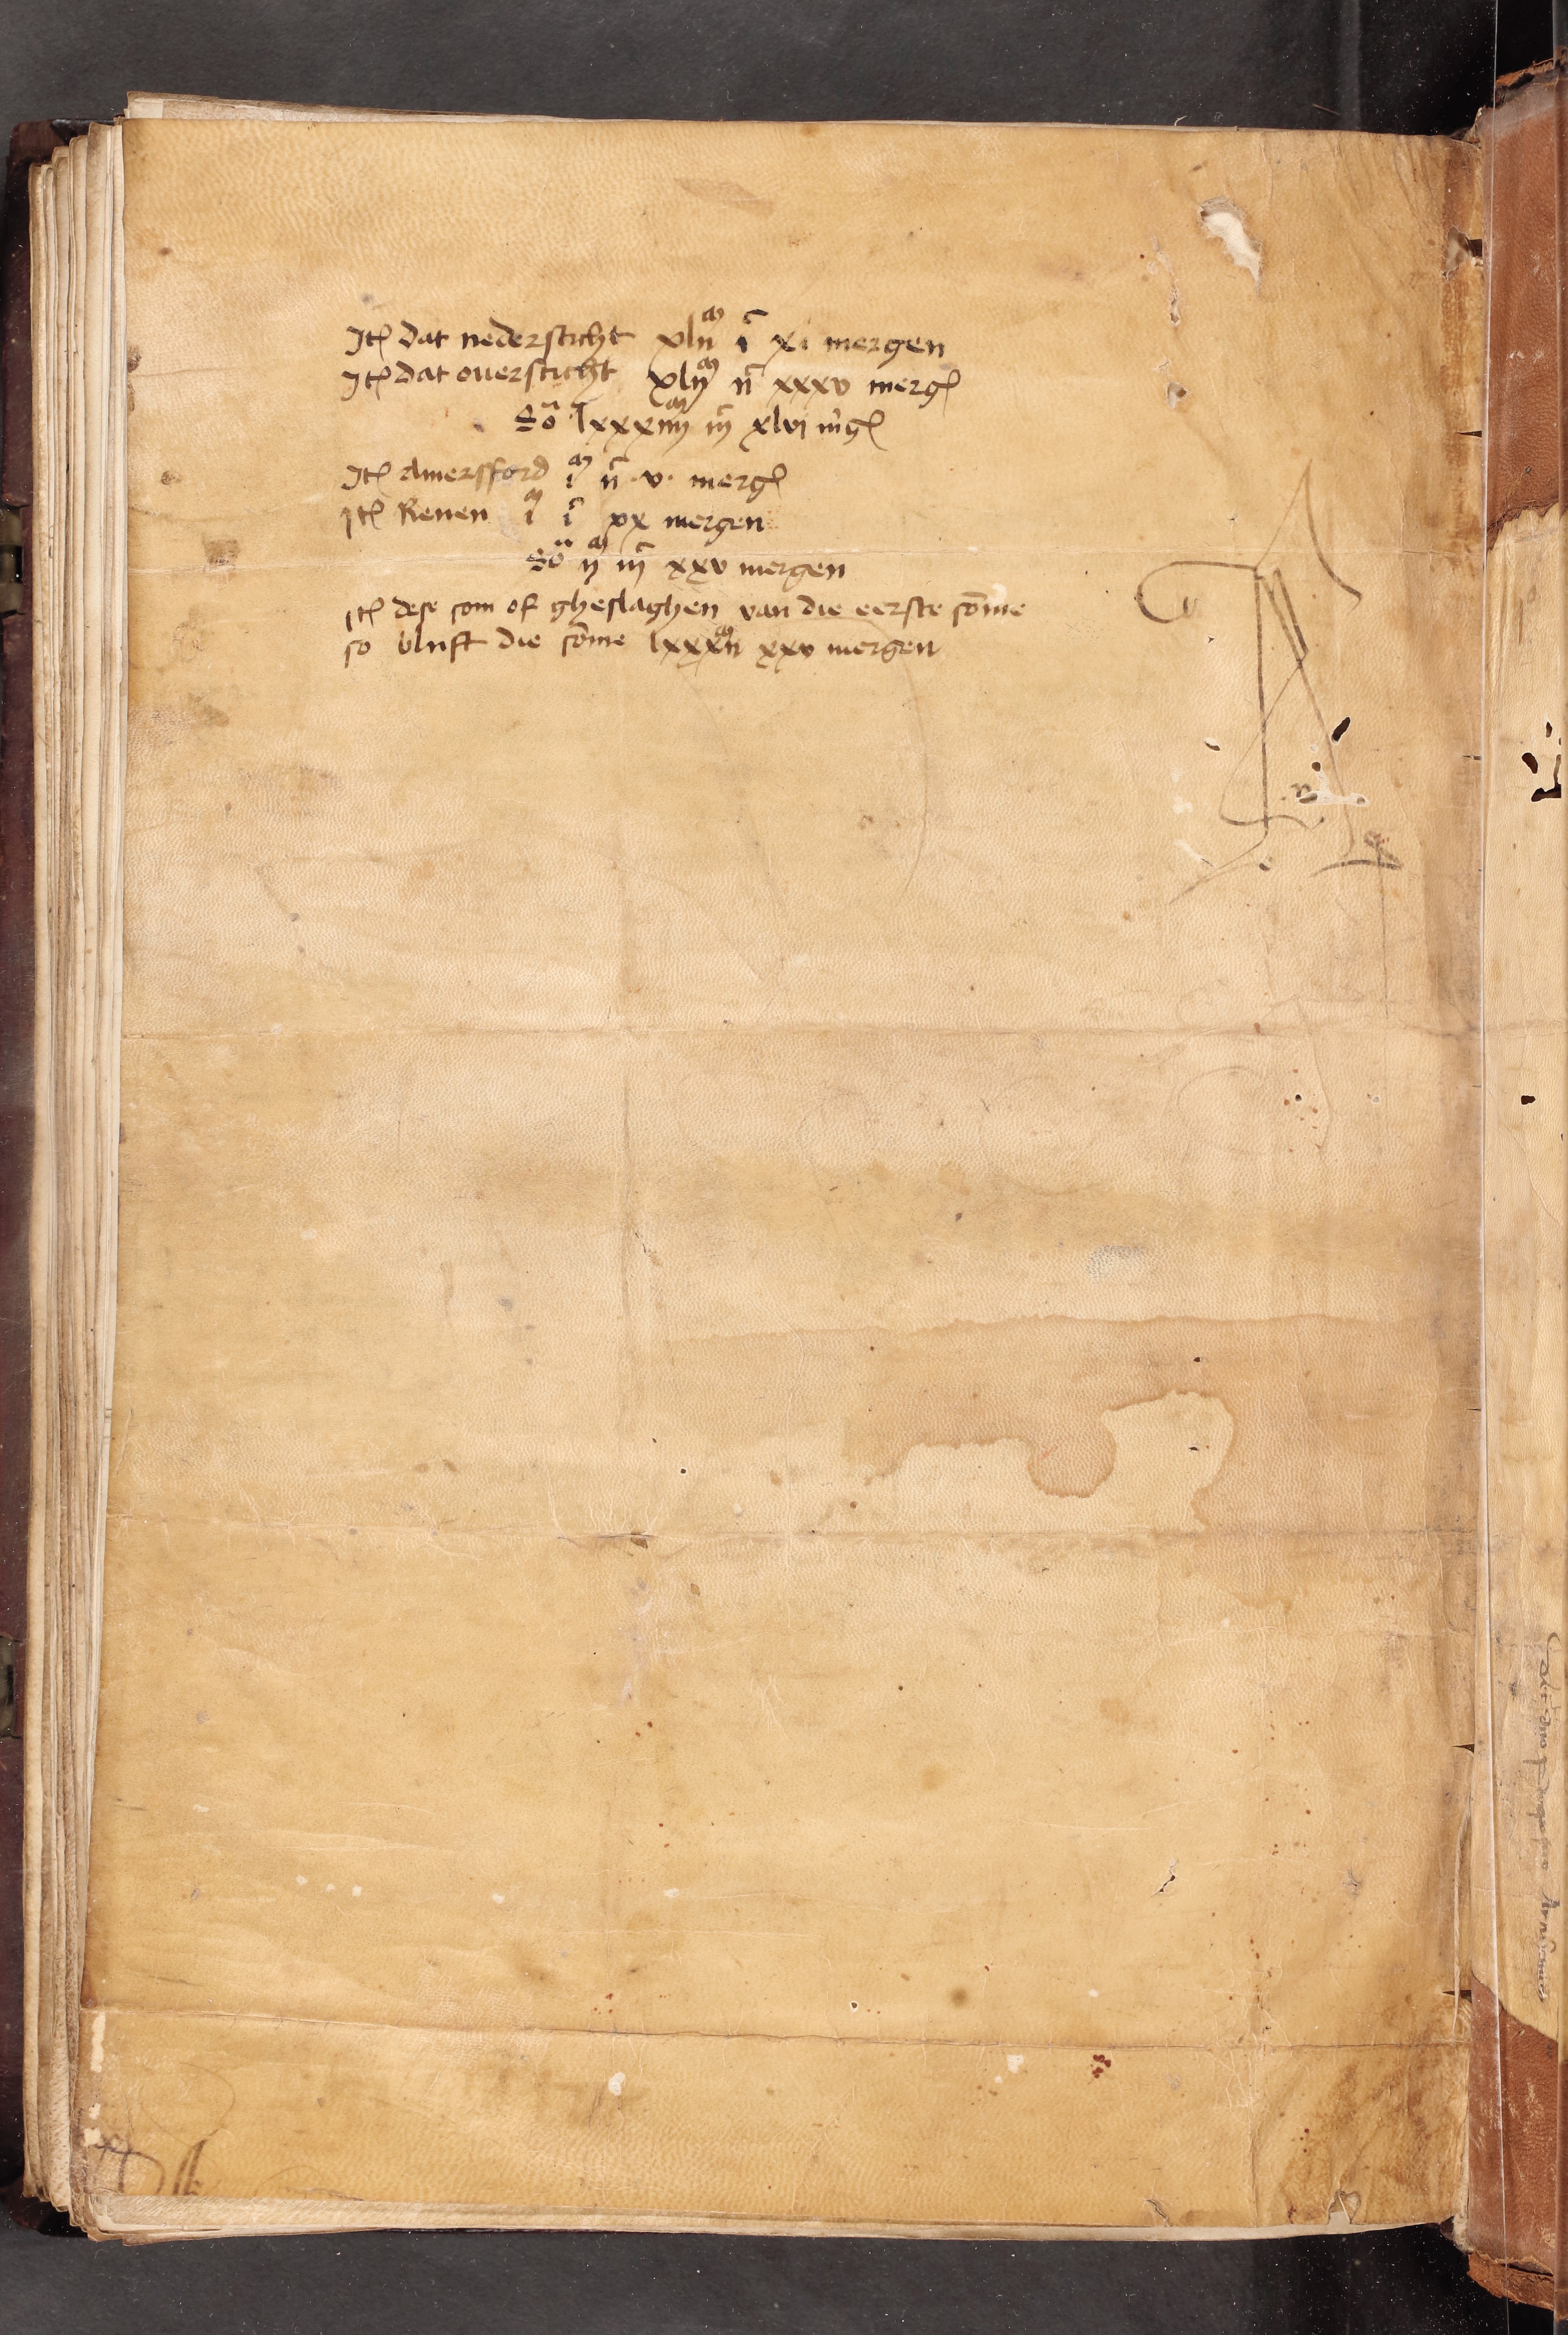 Itē dat nedersticht xlii^m i^c xi mergen
Itē dat ouersticht xlij^m ii^c xxxv merḡ
Sō lxxxiiij^m iij^c xlvj m̄ḡ
Itē Amersfford i^m ii^c ·v· merḡ
Itē Renen i^m i^c xx mergen
Sō ij^m iij^c xxv mergen
Itē dese som of gheslaghen van die eerste sōme
so blijft die sōme lxxxii^m xxv mergen